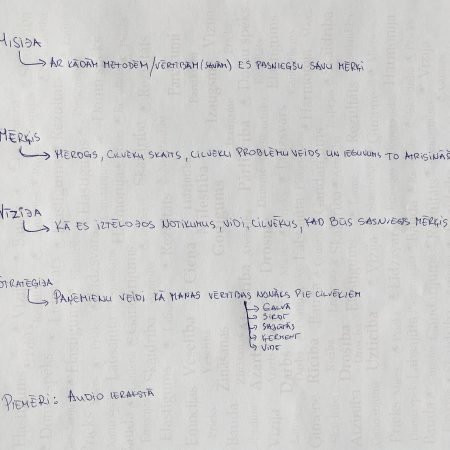 MISIJA
AR KĀDĀM METODĒM/VĒRTĪBĀM (SAVĀM) ES PASNIEGŠU SAVU MĒRĶI
MĒRĶIS
MĒROGS, CILVĒKU SKAITS, CILVĒKU PROBLĒMU VEIDS UN IEGUVUMS TO ATRISINĀŠ
VĪZIJA
KĀ ES IZTĒLOJOS NOTIKUMUS, VIDI, CILVĒKUS, KAD BŪS SASNIEGTS MĒRĶIS
STRATĒĢIJA
PAŅĒMIENU VEIDI KĀ MANAS VĒRTĪBAS NONĀKS PIE CILVĒKIEM
GALVĀ
SIRDĪ
SAJŪTĀS
ĶERMENĪ
VIDĒ
PIEMĒRI: AUDIO IERAKSTĀ